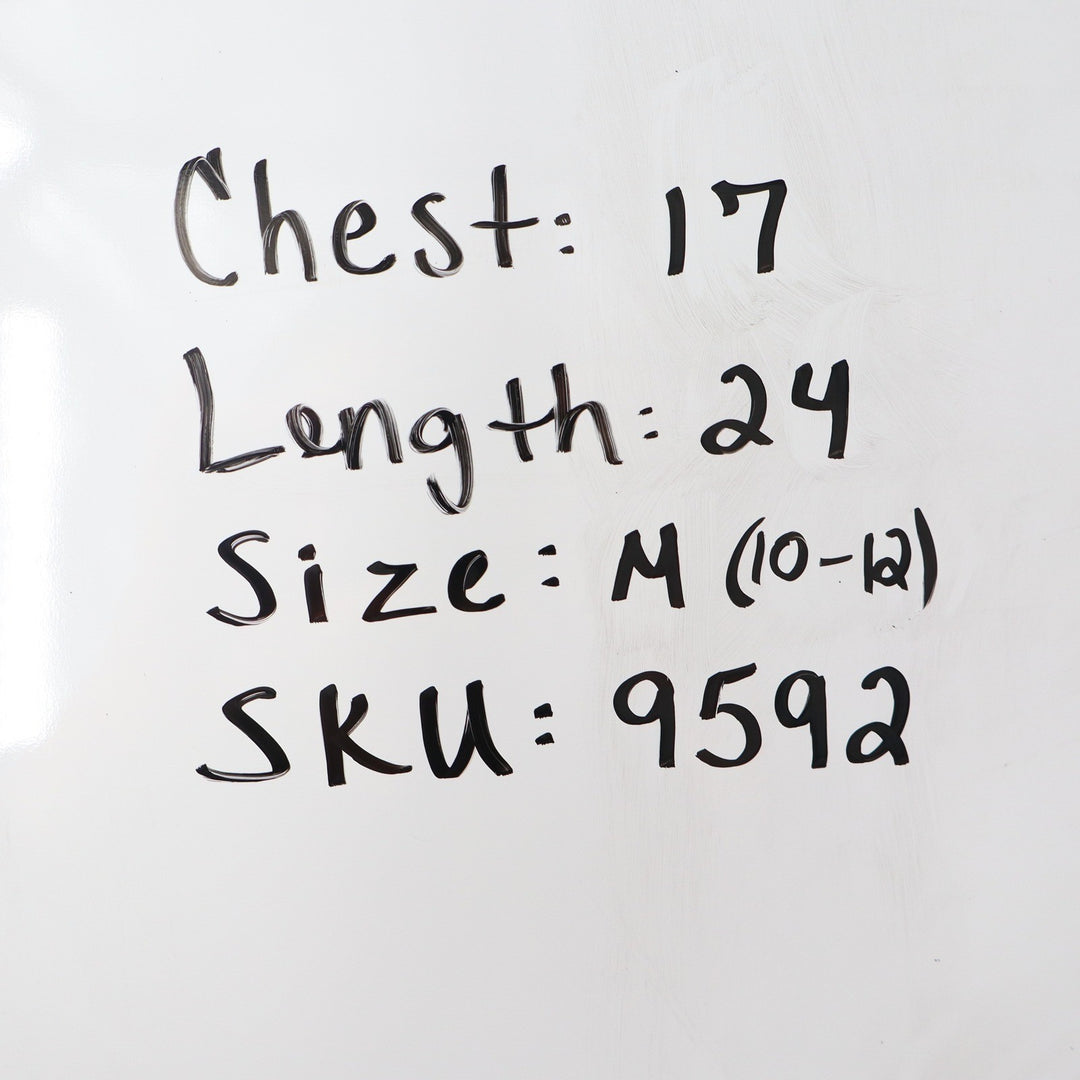 Chest: 17
Length: 24
Size: M (10-12)
SKU: 9592